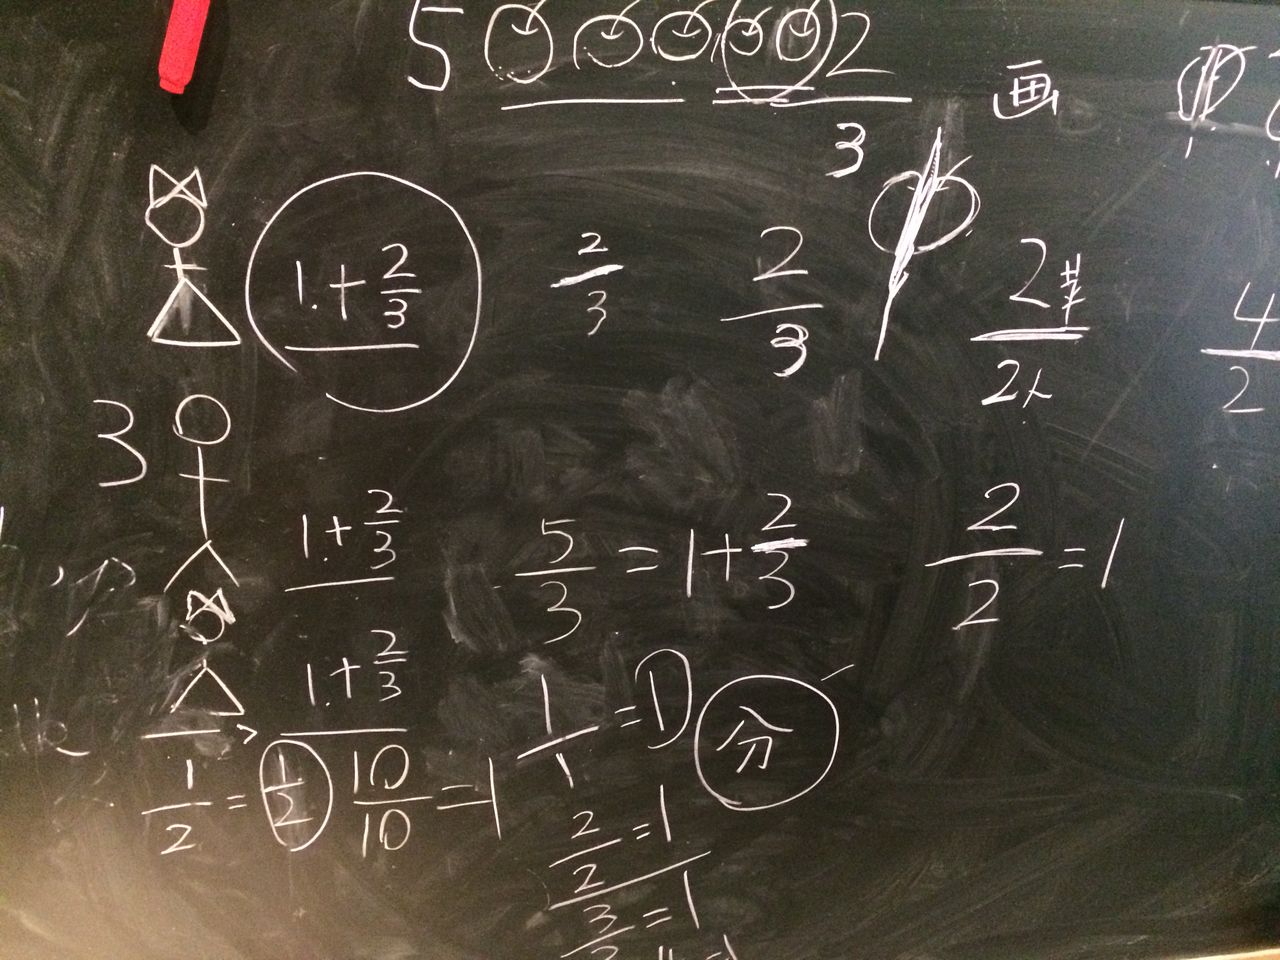 5 2
3 画
1+2/3 2/3 2/3 2/2人 4/2
3
1+2/3 5/3=1+2/3 2/2=1
1+2/3
1/2=1/2 10/10=1 1/1=1 分
2/2=1
3/3=1